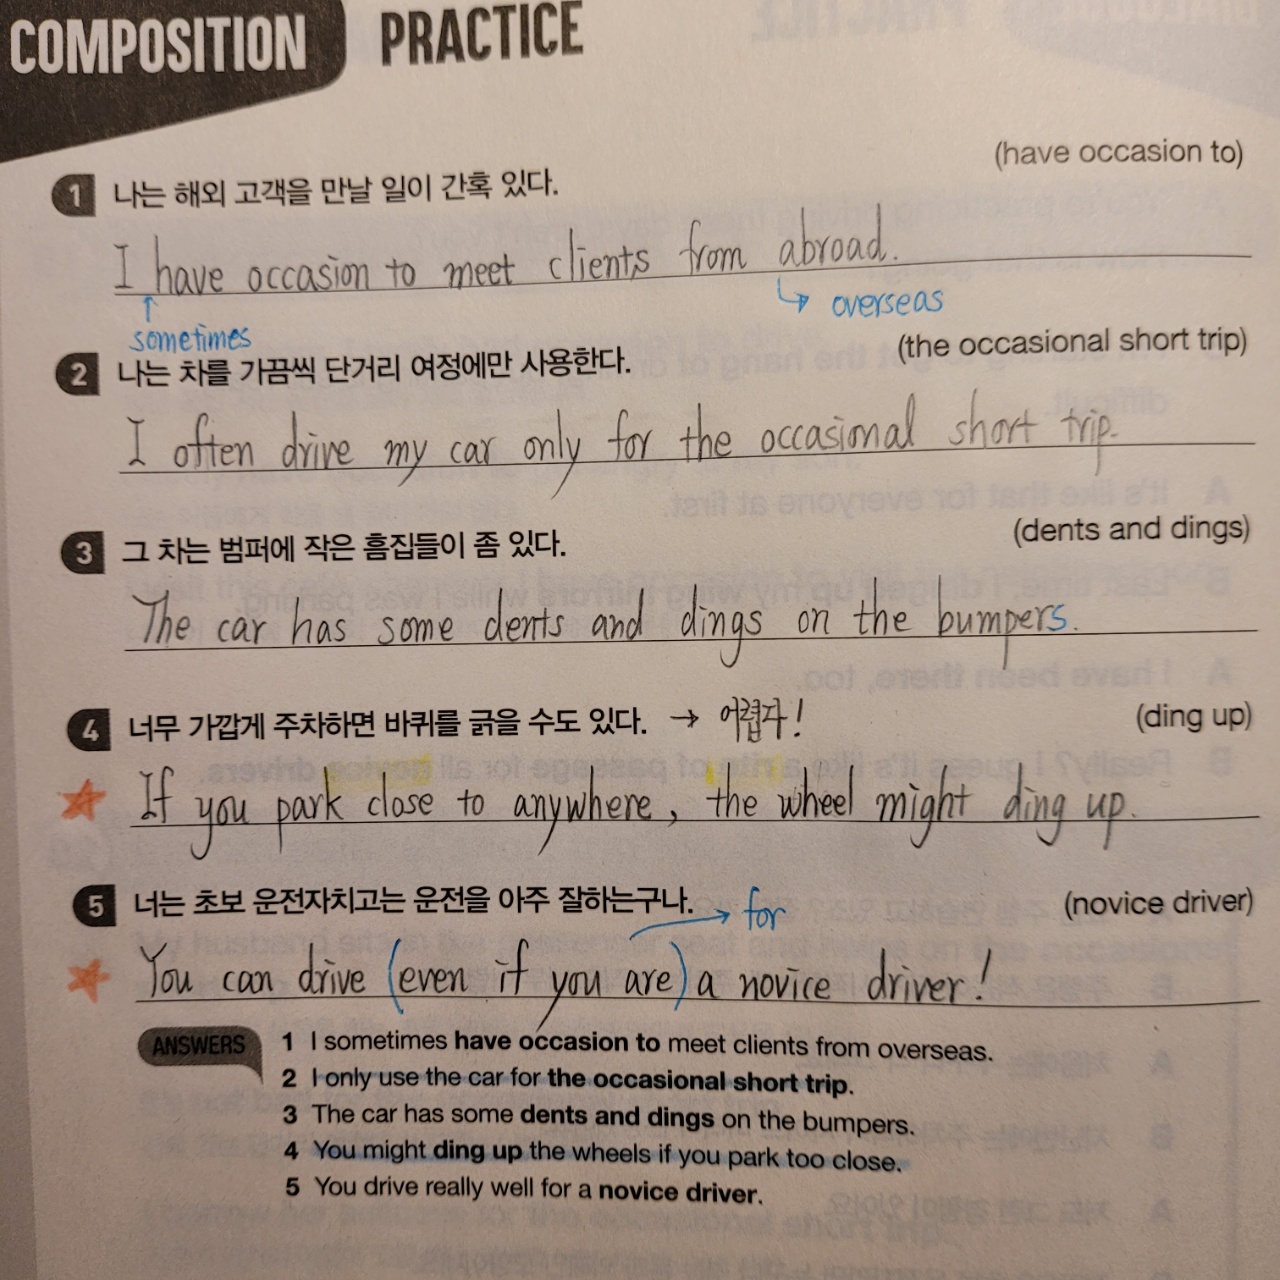 COMPOSITION PRACTICE
(have occasion to)
1 나는 해외 고객을 만날 일이 간혹 있다.
I have occasion to meet clients from abroad.
↑ sometimes
↳ overseas
(the occasional short trip)
2 나는 차를 가끔씩 단거리 여정에만 사용한다.
I often drive my car only for the occasional short trip.
(dents and dings)
3 그 차는 범퍼에 작은 흠집들이 좀 있다.
The car has some dents and dings on the bumpers.
4 너무 가깝게 주차하면 바퀴를 긁을 수도 있다. → 어렵다! (ding up)
If you park close to anywhere, the wheel might ding up.
5 너는 초보 운전자치고는 운전을 아주 잘하는구나. → for (novice driver)
You can drive (even if you are) a novice driver!
ANSWERS
1 I sometimes have occasion to meet clients from overseas.
2 I only use the car for the occasional short trip.
3 The car has some dents and dings on the bumpers.
4 You might ding up the wheels if you park too close.
5 You drive really well for a novice driver.